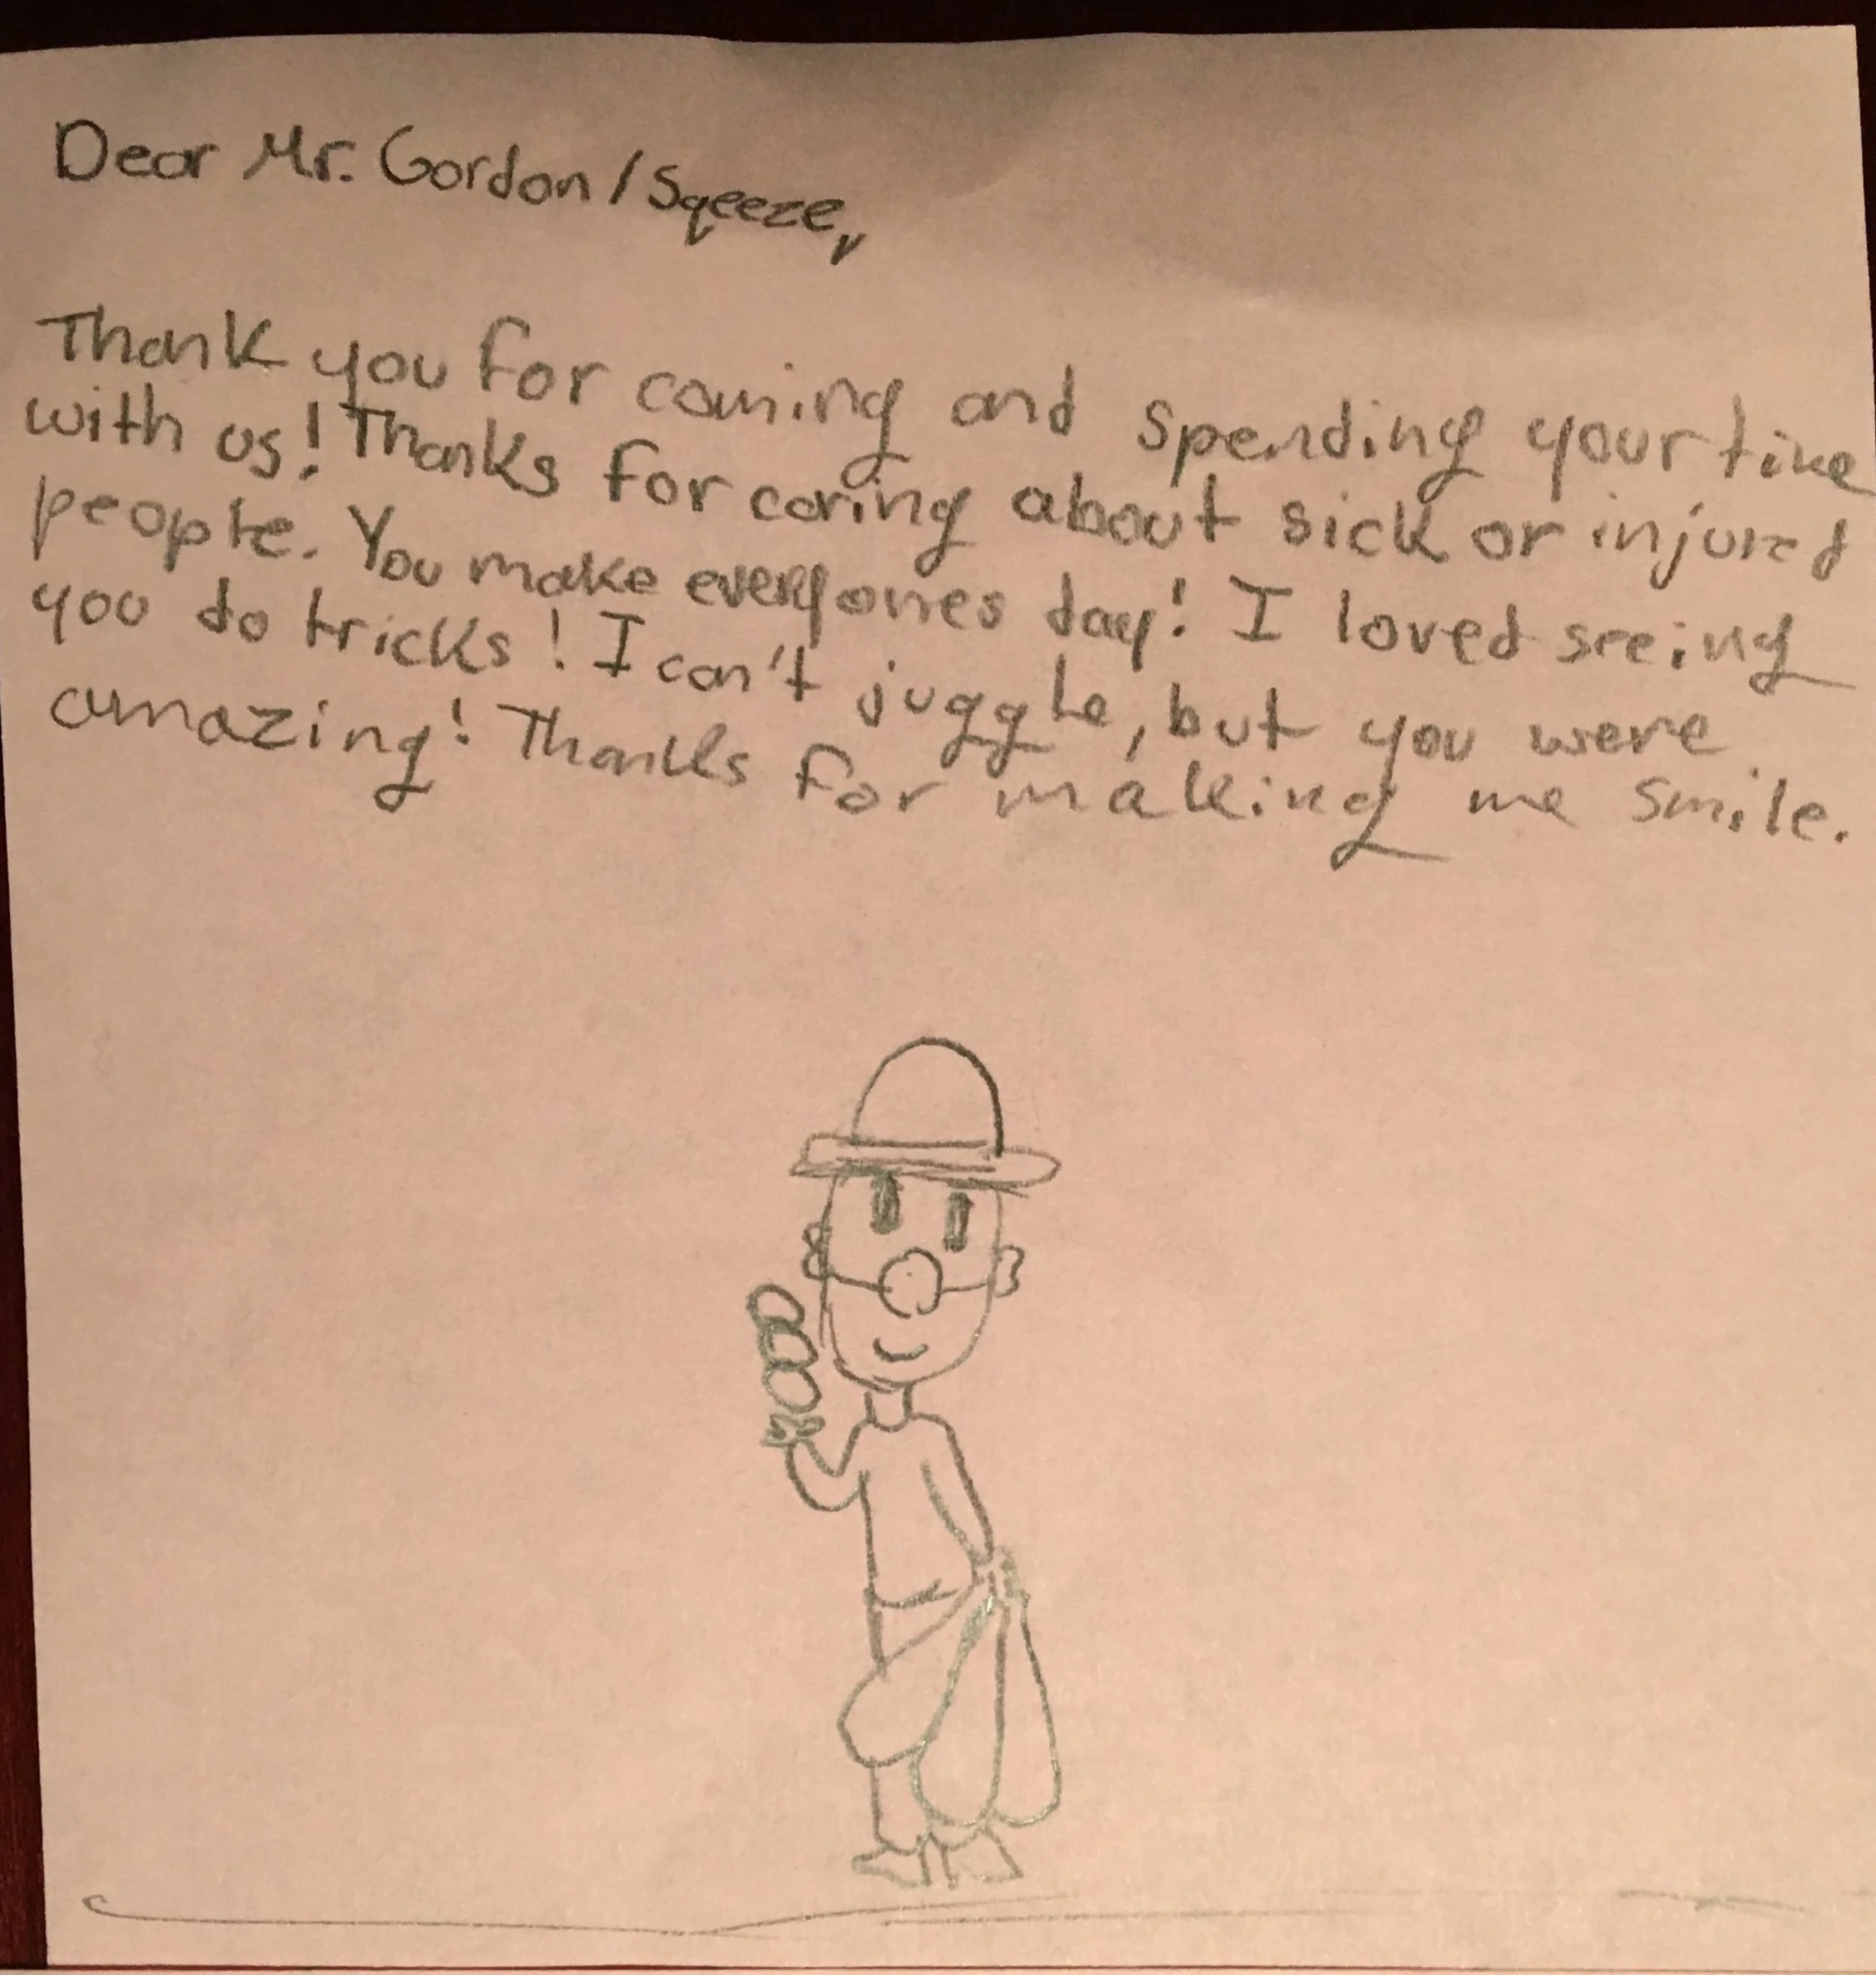 Dear Mr. Gordon/Sqeeze,
Thank you for coming and spending your time
with us! Thanks for caring about sick or injured
people. You make everyones day! I loved seeing
you do tricks! I can't juggle, but you were
amazing! Thanks for making me smile.